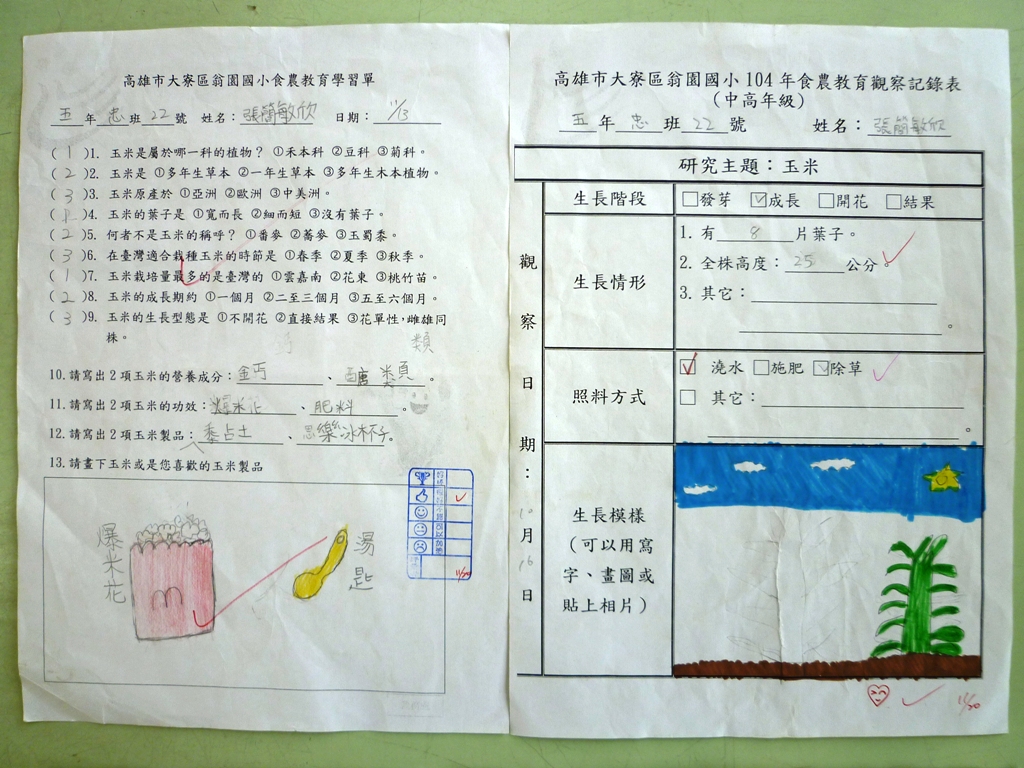 高雄市大寮區翁園國小食農教育學習單
五年 忠 班 22 號 姓名：張簡敏欣 日期：11/13
( 1 )1. 玉米是屬於哪一科的植物？ ①禾本科 ②豆科 ③菊科。
( 2 )2. 玉米是 ①多年生草本 ②一年生草本 ③多年生木本植物。
( 3 )3. 玉米原產於 ①亞洲 ②歐洲 ③中美洲。
( 1 )4. 玉米的葉子是 ①寬而長 ②細而短 ③沒有葉子。
( 2 )5. 何者不是玉米的稱呼？ ①番麥 ②蕎麥 ③玉蜀黍。
( 3 )6. 在臺灣適合栽種玉米的時節是 ①春季 ②夏季 ③秋季。
( 1 )7. 玉米栽培量最多的是臺灣的 ①雲嘉南 ②花東 ③桃竹苗。
( 2 )8. 玉米的成長期約 ①一個月 ②二至三個月 ③五至六個月。
( 3 )9. 玉米的生長型態是 ①不開花 ②直接結果 ③花單性，雌雄同
株。
鈣 類
10.請寫出2項玉米的營養成分：金丐、醣類。
11.請寫出2項玉米的功效：爆米花、肥料。
12.請寫出2項玉米製品：黍占土、思樂冰杯子。
13.請畫下玉米或是您喜歡的玉米製品
爆米花
湯匙
11/20
高雄市大寮區翁園國小 104 年食農教育觀察記錄表
（中高年級）
五 年 忠 班 22 號 姓名：張簡敏欣
研究主題：玉米
觀察日期：10月16日
生長階段
□發芽 ☑成長 □開花 □結果
生長情形
1. 有 8 片葉子。
2. 全株高度：25 公分。
3. 其它：
。
照料方式
☑ 澆水 □施肥 ☑除草
□ 其它：
。
生長模樣
（可以用寫
字、畫圖或
貼上相片）
11/20